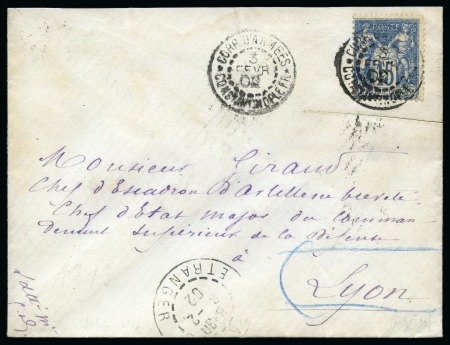 CORR. D'ARMEES
3
FEVR
02
CONSTANTINOPLE
POSTE
Monsieur Giraud
Chef d'Escadron d'Artillerie breveté
Chef d'Etat major du Comman
dement Supérieur de la Défense
à
Lyon
ETRANGER
02